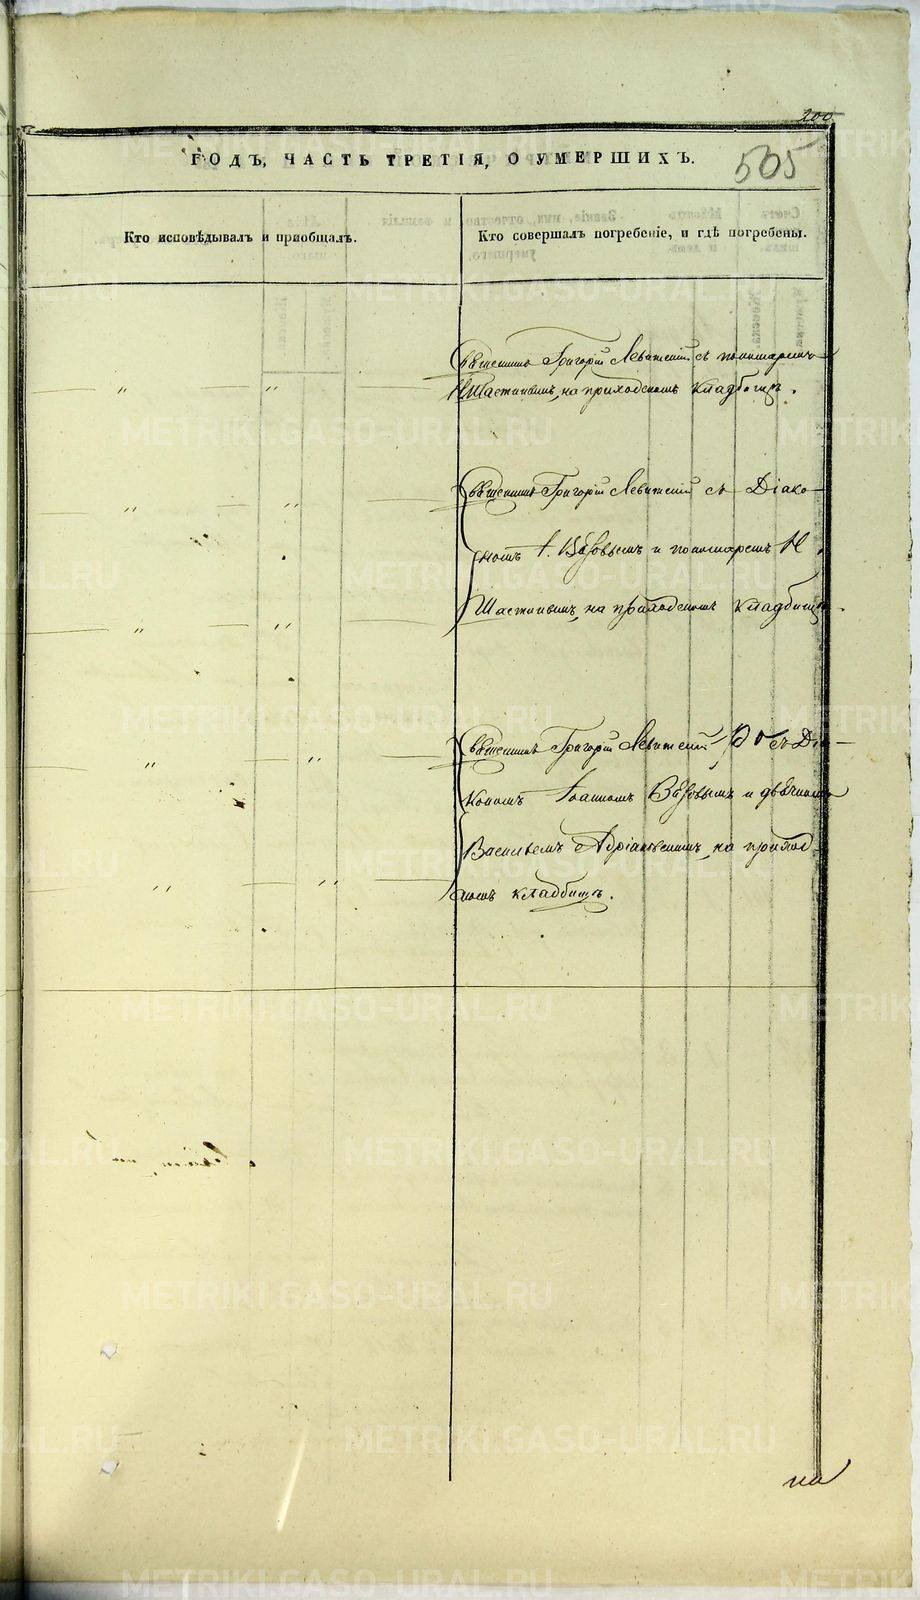 200
505
ГОДЪ, ЧАСТЬ ТРЕТІЯ, О УМЕРШИХЪ.
Кто исповѣдывалъ и пріобщалъ.
Кто совершалъ погребеніе, и гдѣ погребены.
Священникъ Григорій Левитскій съ пономаремъ
" " Н. Шастинымъ, на приходскомъ кладбищѣ.
" " Священникъ Григорій Левитскій съ Діако-
номъ І. и пономаремъ Н.
" " Шастинымъ, на приходскомъ кладбищѣ.
" " Священникъ Григорій Левитскій съ Діа-
кономъ Іоанномъ и дьячкомъ
Васильемъ на приход-
" " номъ кладбищѣ.
на
METRIKI.GASO-URAL.RU